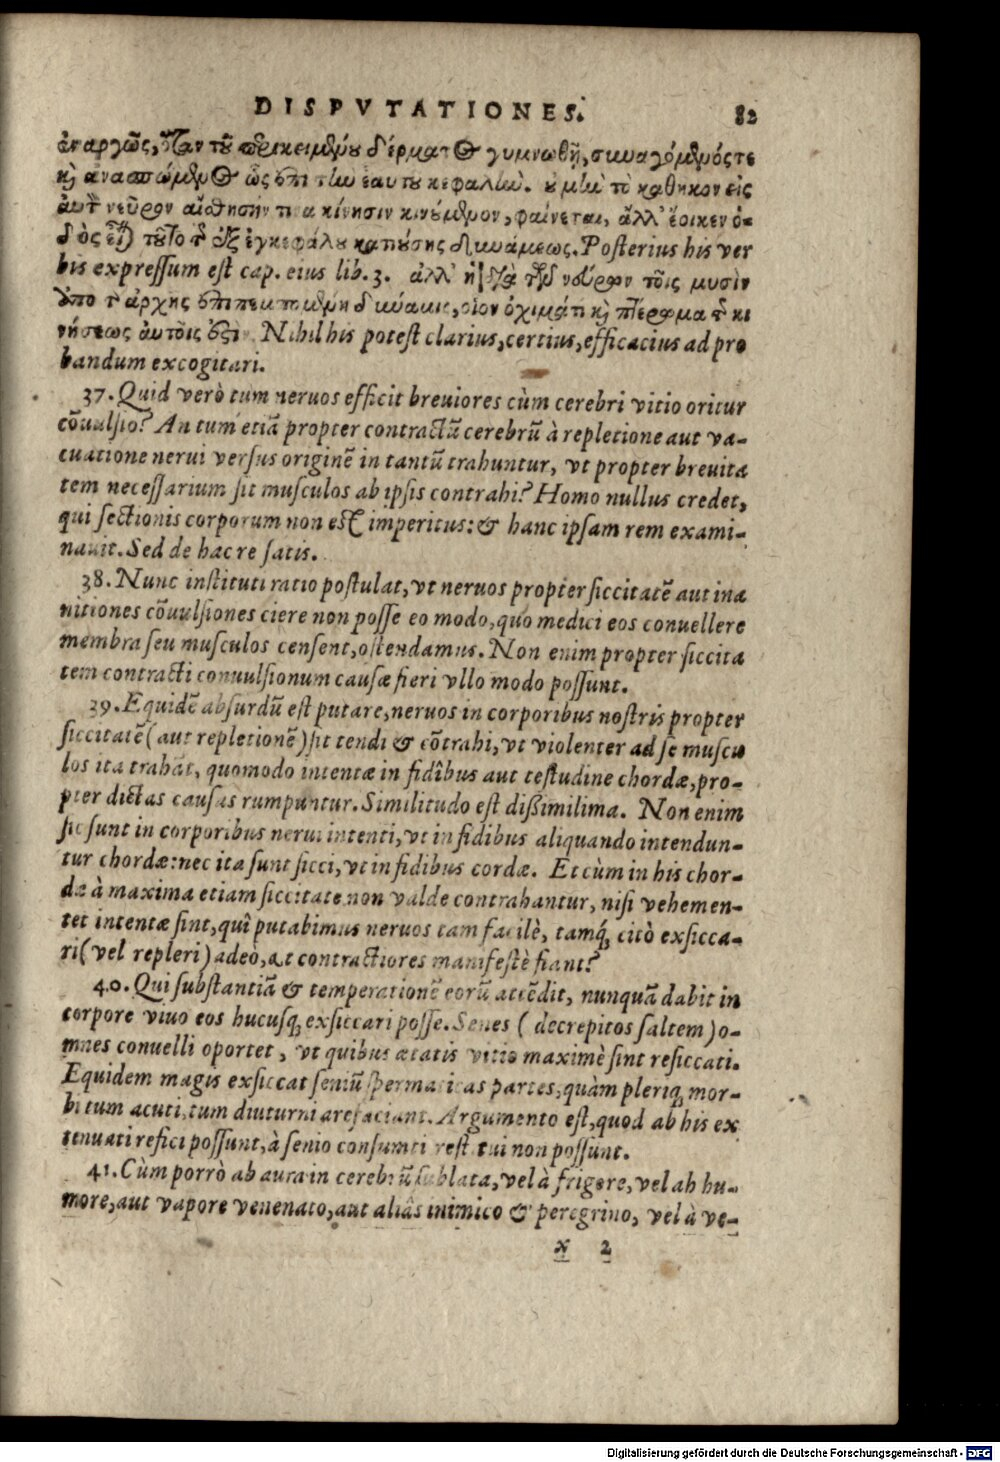 DISPVTATIONES. 82
ἐναργῶς, ὅταν τοῦ περικειμένου δέρματος γυμνωθῇ, συναγόμενός τε
καὶ ἀνασπώμενος ὡς ἐπὶ τὴν ἑαυτοῦ κεφαλήν. οὐ μὴν τὸ καθῆκον εἰς
αὐτὸν νεῦρον αἰσθητήν τινα κίνησιν κινούμενον, φαίνεται, ἀλλ' ἔοικεν ὁ-
δὸς εἶναι τοῦτο τῆς ἐξ ἐγκεφάλου κατιούσης δυνάμεως. Posterius his ver
bis expressum est cap. eius lib. 3. ἀλλ' ἡ διὰ τῶν νεύρων τοῖς μυσὶν
ὑπὸ τῆς ἀρχῆς ἐπιπεμπομένη δύναμις, οἷον ὀχήματι καὶ πτέρωμα τῆς κι
νήσεως αὐτοῖς ἐστιν. Nihil his potest clarius, certius, efficacius ad pro
bandum excogitari.
37. Quid verò tum neruos efficit breuiores cùm cerebri vitio oritur
cõuulsio? An tum etiã propter contractũ cerebrũ à repletione aut va-
cuatione nerui versus originẽ in tantũ trahuntur, vt propter breuita
tem necessarium sit musculos ab ipsis contrahi? Homo nullus credet,
qui sectionis corporum non est imperitus: & hanc ipsam rem exami-
nauit. Sed de hac re satis.
38. Nunc instituti ratio postulat, vt neruos propter siccitatẽ aut ina
nitiones cõuulsiones ciere non posse eo modo, quo medici eos conuellere
membra seu musculos censent, ostendamus. Non enim propter siccita
tem contracti conuulsionum causæ fieri vllo modo possunt.
39. Equidẽ absurdũ est putare, neruos in corporibus nostris propter
siccitatẽ (aut repletionẽ) sit tendi & cõtrahi, vt violenter ad se muscu
los ita trahãt, quomodo intentæ in fidîbus aut testudine chordæ, pro-
pter dictas causas rumpuntur. Similitudo est dißimilima. Non enim
sic sunt in corporibus nerui intenti, vt in fidibus aliquando intendun-
tur chordæ: nec ita sunt sicci, vt in fidibus cordæ. Et cùm in his chor-
dæ à maxima etiam siccitate non valde contrahantur, nisi vehemen-
tet intentæ sint, quî putabimus neruos tam facilè, tamq́; citò exsicca-
ri (vel repleri) adeò, vt contractiores manifestè fiant?
40. Qui substantiã & temperationẽ eorũ attẽdit, nunquã dabit in
corpore viuo eos hucusq; exsiccari posse. Senes (decrepitos saltem) o-
mnes conuelli oportet, vt quibus ætatis vitio maximè sint resiccati.
Equidem magis exsiccat seniũ spermaticas partes, quàm pleriq; mor-
bi tum acuti, tum diuturni arefaciant. Argumento est, quod ab his ex
tenuati refici possunt, à senio consumti restitui non possunt.
41. Cùm porrò ab aura in cerebrũ sublata, vel à frigore, vel ab hu-
more, aut vapore venenato, aut aliâs inimico & peregrino, vel à ve-
x 2
Digitalisierung gefördert durch die Deutsche Forschungsgemeinschaft - DFG